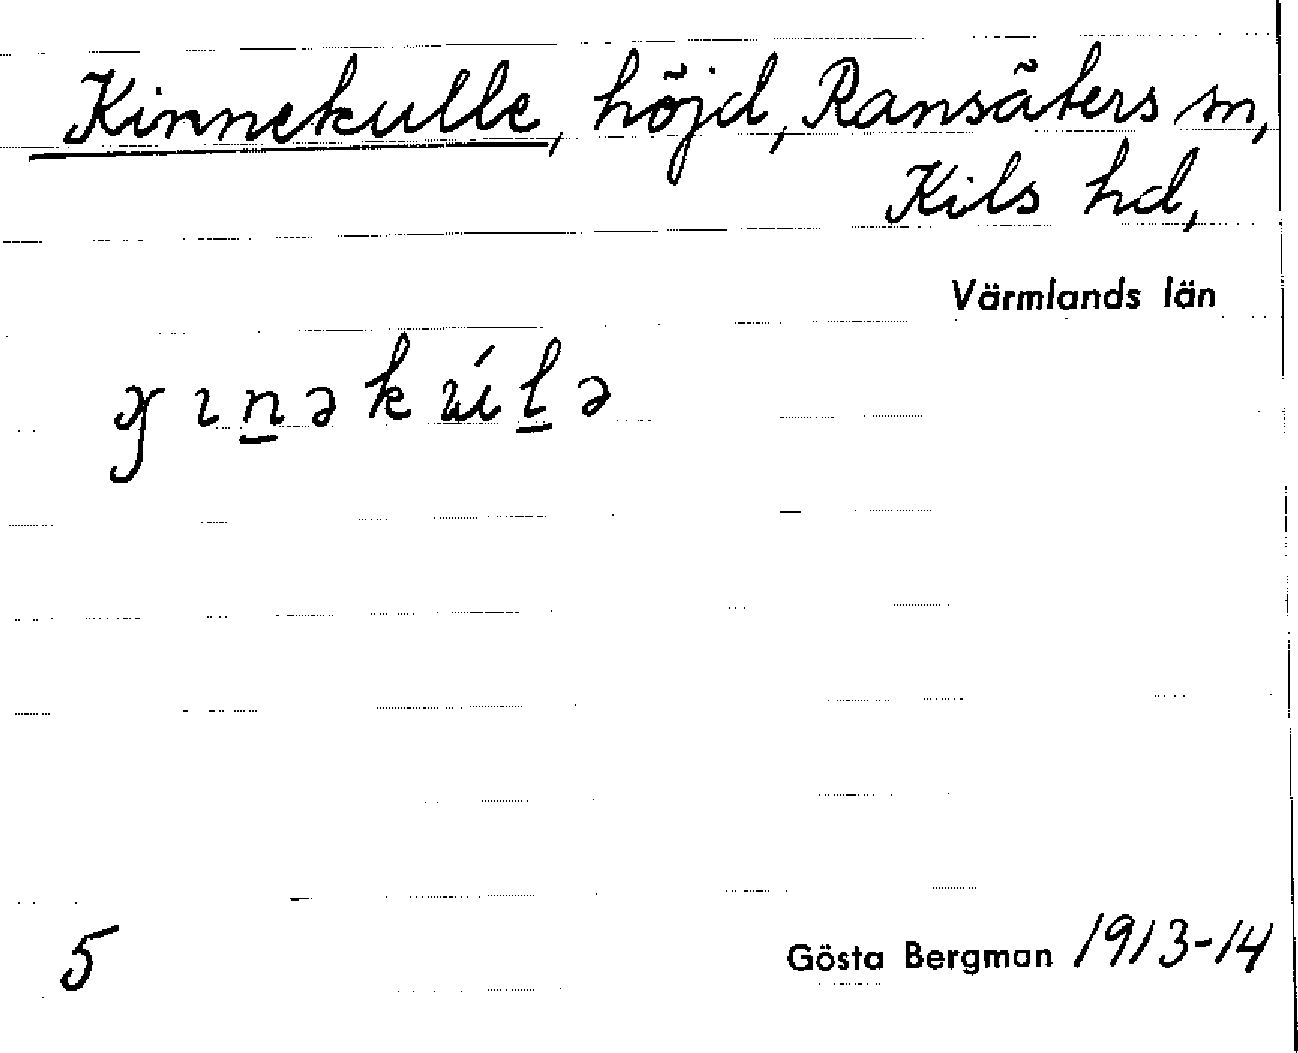 Kinnekulle, höjd, Ransäters sn,
Kils hd,
Värmlands län
5
Gösta Bergman 1913-14